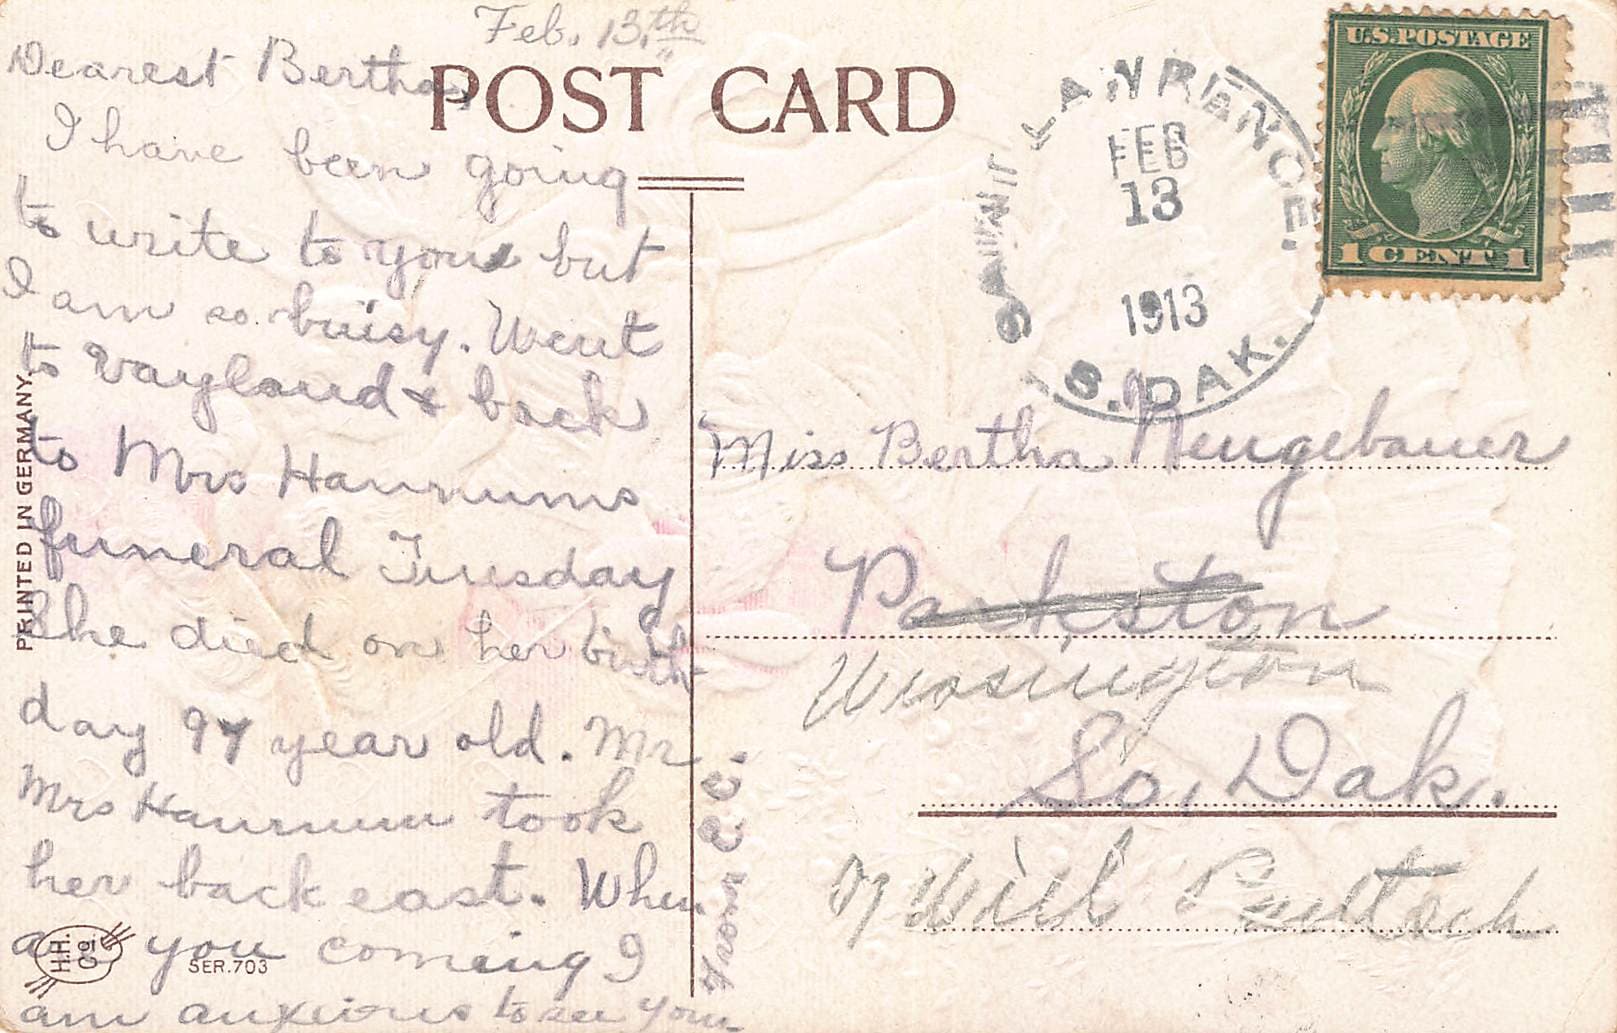 Feb. 13.th
Dearest Bertha,
POST CARD
I have been going
to write to you but
I am so buisy. Went
to Vayland & back
to Mrs Hannums
funeral Tuesday
She died on her birth
day 97 year old. Mr
Mrs Hannum took
her back east. When
are you comeing I
am anxious to see you
From C.C.
PRINTED IN GERMANY.
H.H.
Co i
SER. 703
SAINT LAWRENCE.
FEB
13
1913
S. DAK.
U.S. POSTAGE
1 CENT 1
Miss Bertha Neugebauer
Parkston
Wessington
So. Dak.
Will